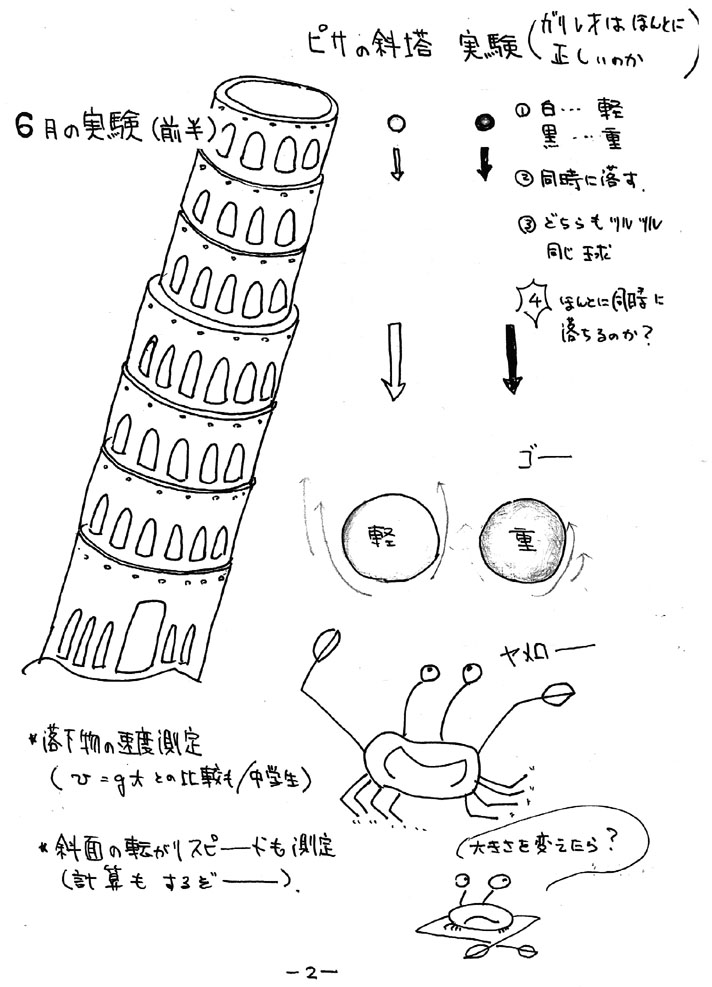 ピサの斜塔 実験 (ガリレオは ほんとに
正しいのか)
6月の実験 (前半)
① 白… 軽
黒…重
② 同時に落す.
③ どちらもツルツル
同じ球
④ ほんとに同時に
落ちるのか?
ゴー
軽
重
ヤメロー
*落下物の速度測定
(v=gtとの比較も/中学生)
*斜面の転がりスピードも測定
(計算も するぞ――).
大きさを変えたら?
-2-